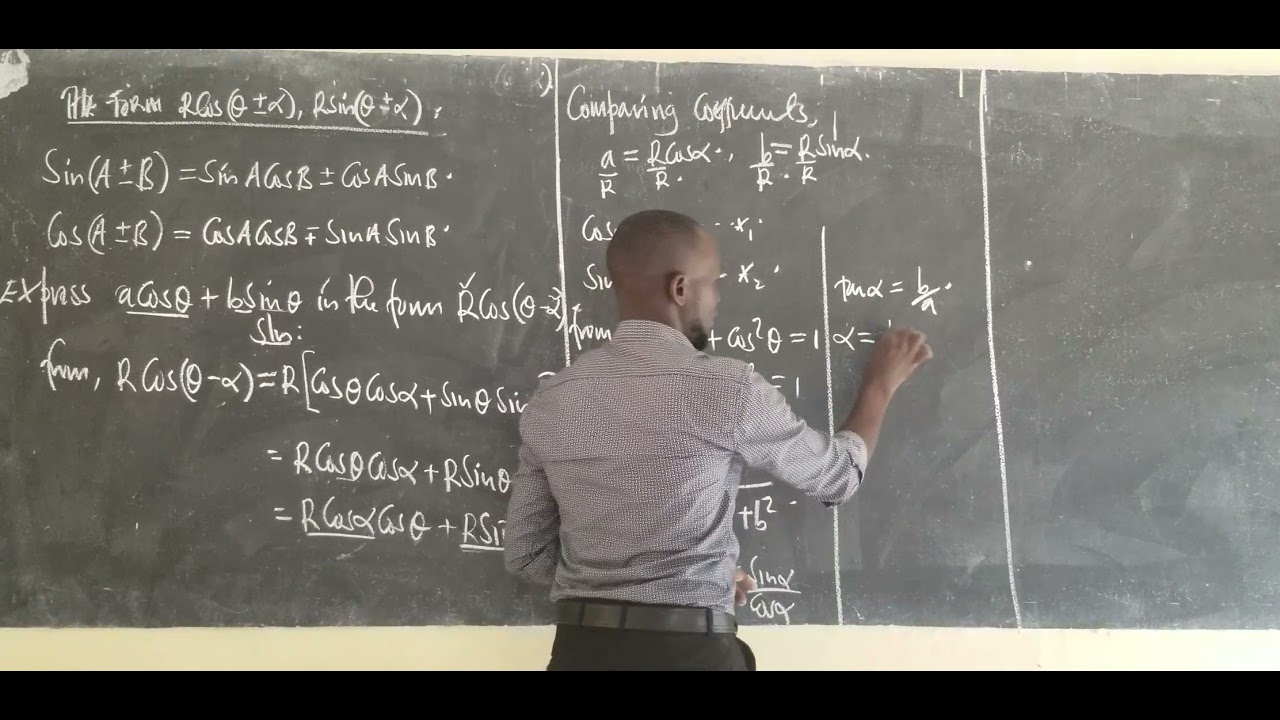 The form RCos(θ ± α), Rsin(θ ± α).
Sin(A ± B) = Sin A Cos B ± Cos A Sin B.
Cos(A ± B) = Cos A Cos B ∓ Sin A Sin B.
Express aCosθ + bSinθ in the form RCos(θ - α)
Sln:
from, RCos(θ - α) = R[Cosθ Cosα + Sinθ Sin
= RCosθ Cosα + RSinθ
= RCosα Cosθ + RSin
Comparing Coefficients,
a/R = RCosα/R., b/R = RSinα/R.
Cos *₁
Sin *₂
from + Cos²θ = 1
² = 1
+b².
Sinα/Cosα
tanα = b/a.
α =